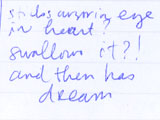 sticks surviving eye
in heart?
swallows it?!
and then has
dream